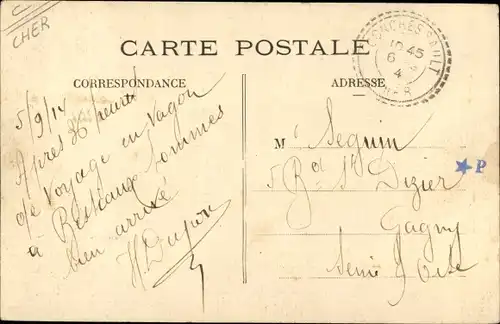 C
CHER
CARTE POSTALE
CORRESPONDANCE
ADRESSE
5/9/14
Après 36 heures
de voyage en vagon
à Bestiaux sommes
bien arrivé
H Dupon
10 45
6
4
CHER
M Seguin
5 Bd St Dizier
Gagny
Seine & Oise
P